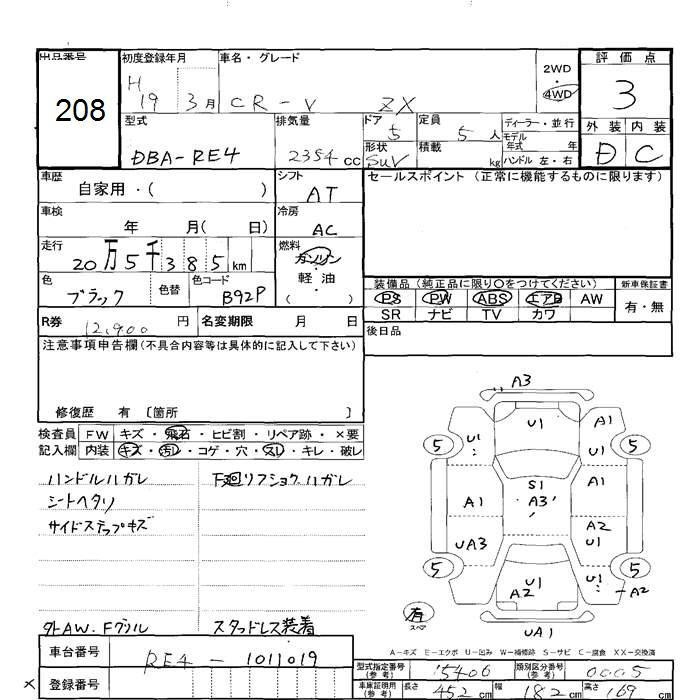 出品番号 初度登録年月 車名・グレード 評価点
208 H 19 3月 CR-V ZX 2WD 4WD 3
型式 排気量 ドア 5 定員 5人 ディーラー・並行 外装 内装
DBA-RE4 2354 cc 形状 SUV 積載 kg モデル年式 年 ハンドル 左・右 D C
車歴 自家用・( ) シフト AT セールスポイント (正常に機能するものに限ります)
車検 年 月( 日) 冷房 AC
走行 20万5千385km 燃料 ガソリン 軽・油 ( )
色 ブラック 色替 色コード B92P
装備品 (純正品に限り○をつけてください) 新車保証書
PS PW ABS エアB AW 有・無
SR ナビ TV カワ
R券 12,900 円 名変期限 月 日 後日品
注意事項申告欄(不具合内容等は具体的に記入して下さい)
修復歴 有 〔箇所 〕
検査員 FW キズ・飛石・ヒビ割・リペア跡・×要
記入欄 内装 キズ・汚レ・コゲ・穴・スレ・キレ・破レ
ハンドルハガレ 下廻リフショクハガレ
シートヘタリ
サイドステップキズ
外AW. Fグリル スタッドレス装着
A3
U1
U1 A1 U1
5 5
A1 S1 A3 A1
UA3 A2 U1
5 U1 A2 U1 5
A2
有 スペア UA1
A-キズ E-エクボ U-凹み W-補修跡 S-サビ C-腐食 XX-交換済
車台番号 RE4-1011019
型式指定番号 (参考) 15406 類別区分番号 (参考) 0005
× 登録番号
車庫証明用 (参考) 長さ 452 cm 幅 182 cm 高さ 169 cm